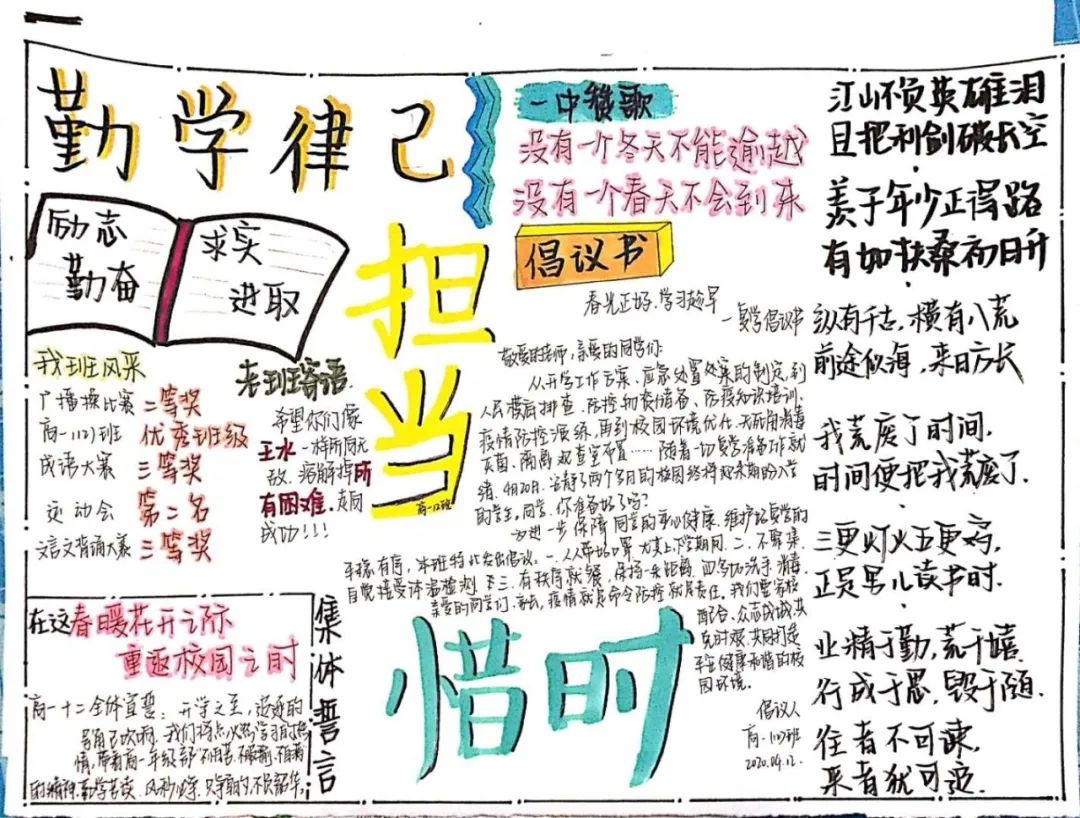 勤学律己
励志
勤奋
求实
进取
我班风采
广播操比赛 二等奖
高一(12)班 优秀班级
成语大赛 三等奖
运动会 第二名
文言文背诵大赛 三等奖
老班寄语
希望你们像
王水一样所向无
敌,溶解掉所
有困难,走向
成功!!!
担当
高一12班
惜时
在这春暖花开之际
重返校园之时
集体誓言
高一十二全体宣誓:开学之至,追逐的
号角已吹响,我们将点火热学习的热
情,带着高一年级部
的精神,勤学苦读,只争朝夕,不负韶华
一中赞歌
没有一个冬天不能逾越
没有一个春天不会到来
倡议书
春光正好,学习趁早
一复学倡议书
敬爱的老师,亲爱的同学们:
从开学工作方案、应急处置处案的制定,到
人民模底排查、防控物资储备、防疫知识培训、
疫情防控演练,再到校园环境优化、无死角消毒
灭菌、隔离观查室布置……随着一切复学准备工作就
绪,4月20日,寂静了两个多月的校园终将迎来期盼入学
的学生,同学,你准备好了吗?
为进一步保障同学的身心健康,维护好复学的
平稳有序,本班特此发出倡议:一、人人带好口罩,尤其上下学期间,二、不聚集,
自觉接受体温检测,三、有秩序就餐,保持一米距离,四、多加洗手、消毒
亲爱的同学们、家长,疫情就是命令防控就是责任,我们要家校
配合、众志成城共
克时艰,共同打造
平安健康和谐的校
园环境。
倡议人
高一(12)班
2020.04.12.
江山不负英雄泪
且把利剑破长空
羡子年少正得路
有如扶桑初日升
纵有千古,横有八荒
前途似海,来日方长
我荒废了时间,
时间便把我荒废了.
三更灯火五更鸡,
正是男儿读书时.
业精于勤,荒于嬉.
行成于思,毁于随.
往者不可谏,
来者犹可追.